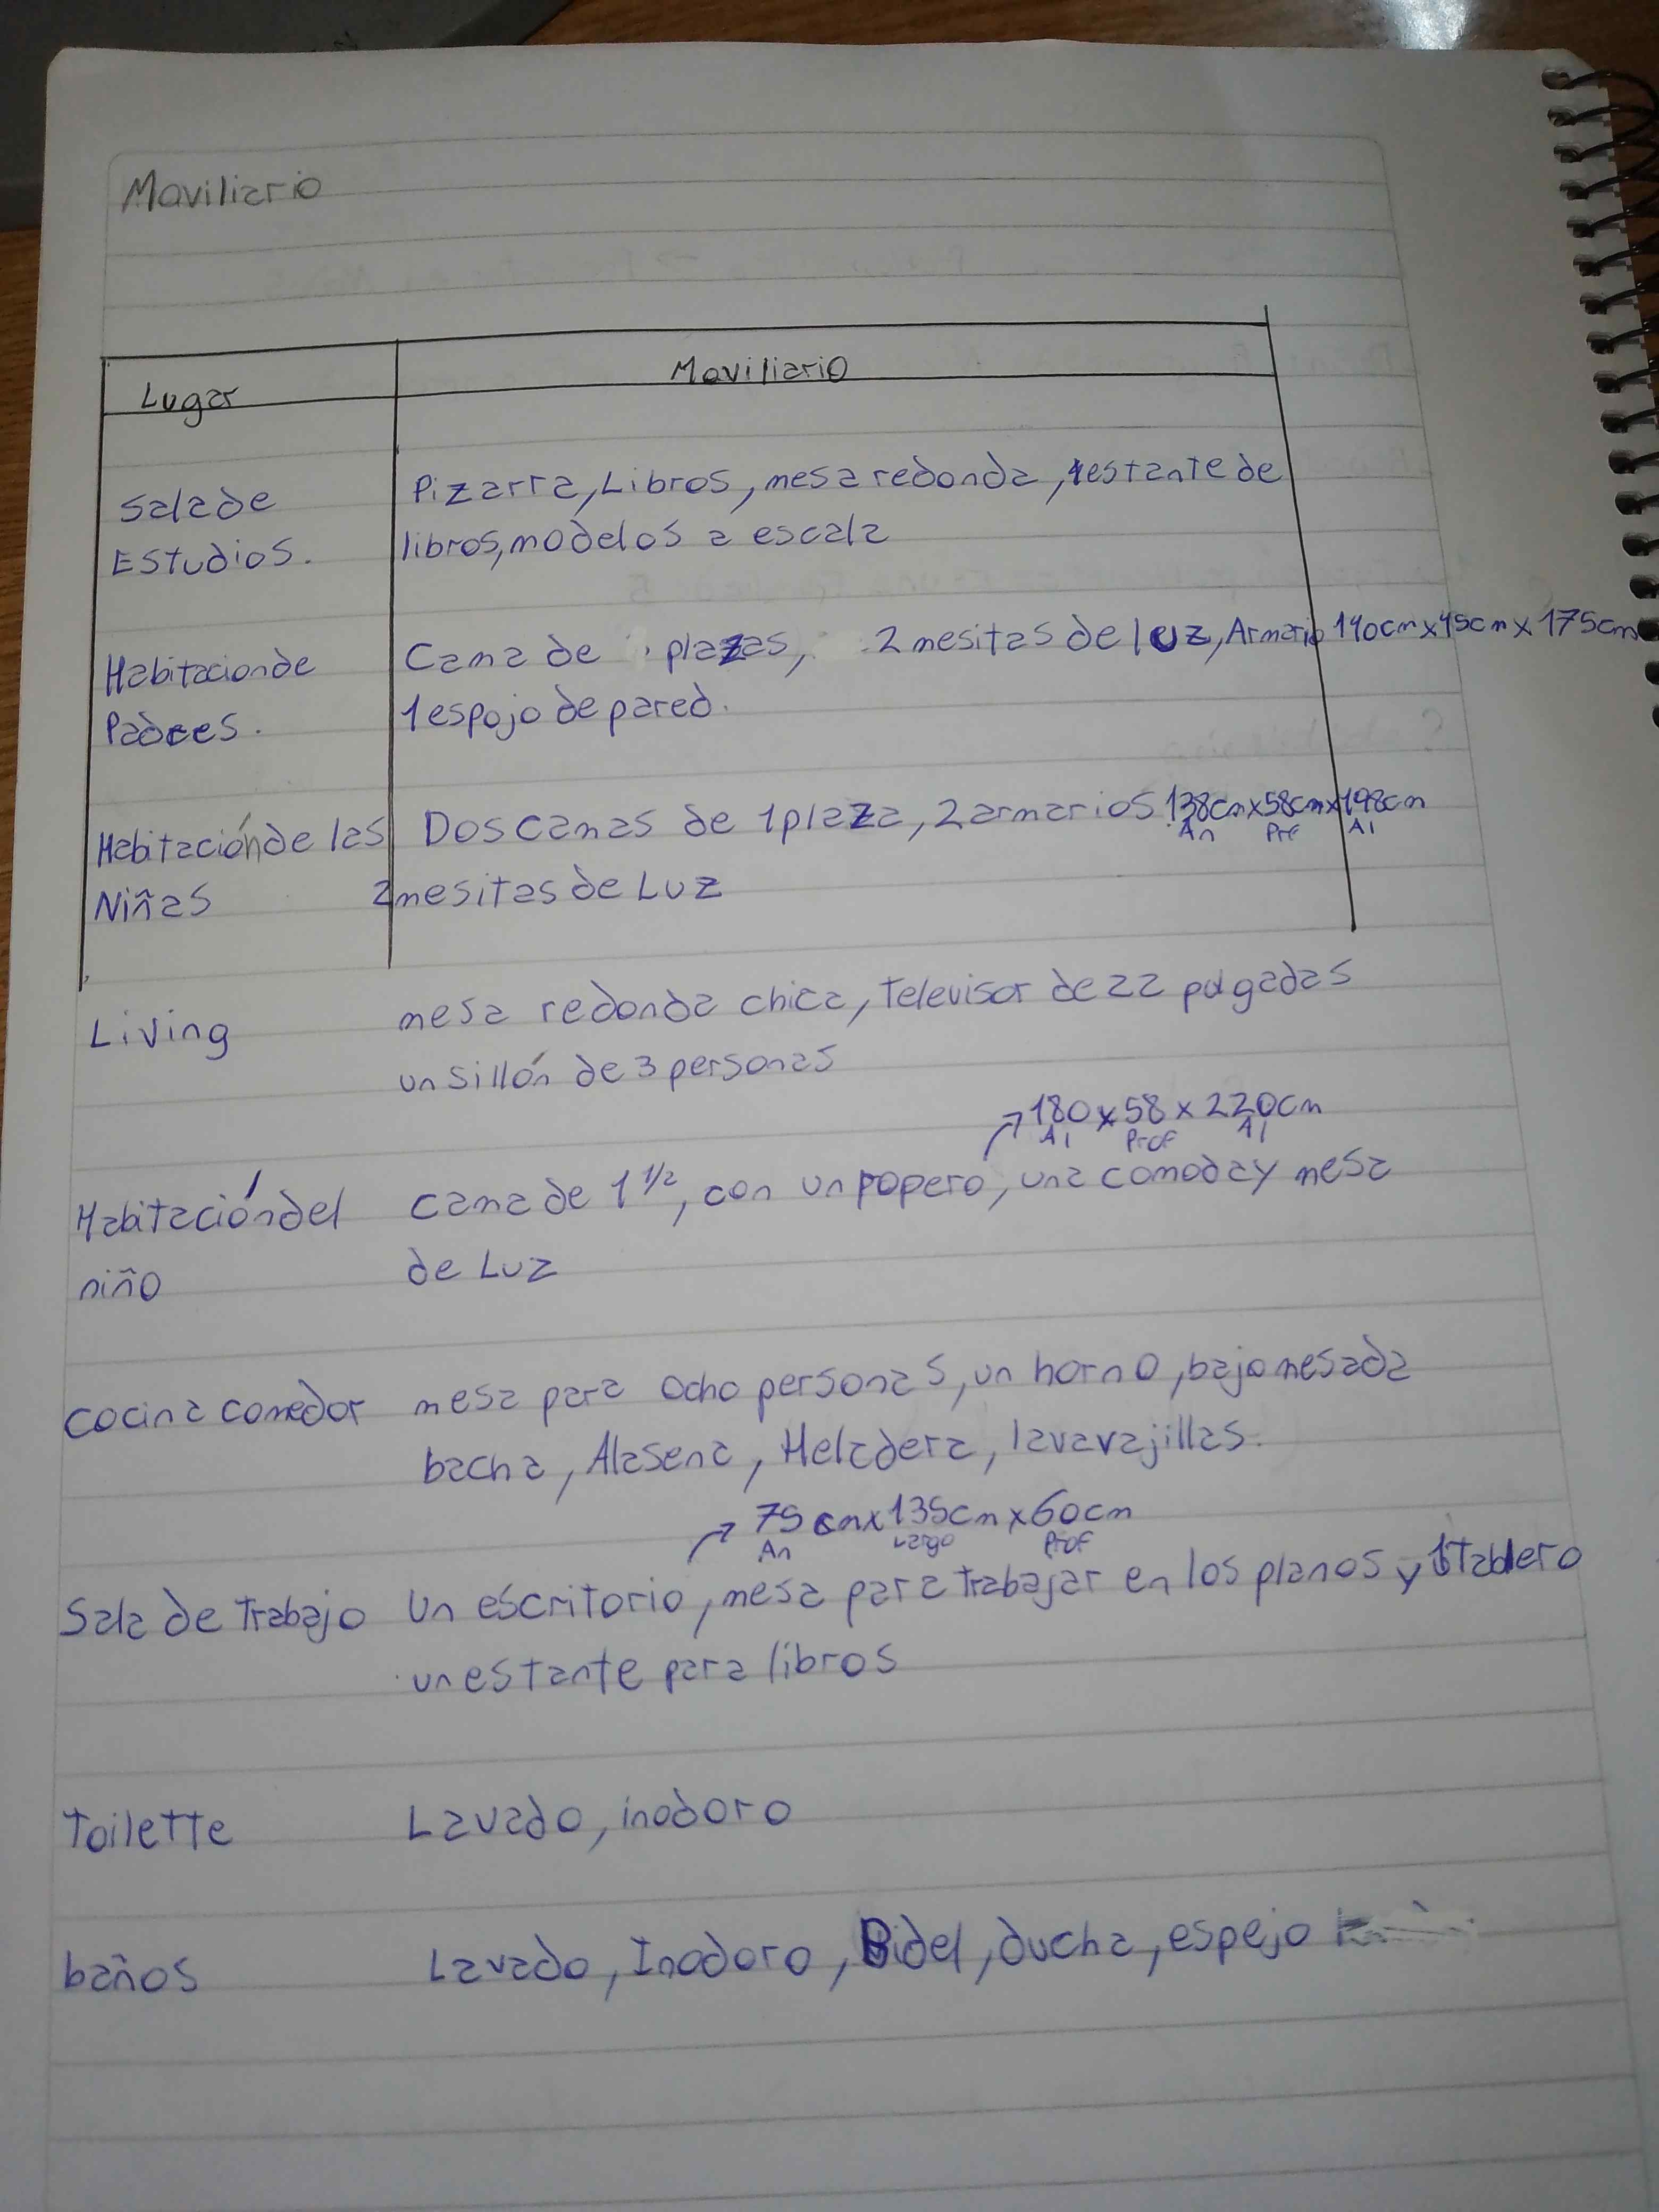 Moviliario
Lugar Moviliario
Sala de Pizarra, Libros, mesa redonda, 1 estante de
Estudios. libros, modelos a escala
Habitacion de Cama de plazas, 2 mesitas de luz, Armario 140cm x 45cm x 175cm
Padres. 1 espojo de pared.
Habitación de las Dos camas de 1 plaza, 2 armarios 138cm x 58cm x 198cm
An Prf Al
Niñas 2 mesitas de Luz
Living mesa redonda chica, Televisor de 22 pulgadas
un sillón de 3 personas
180 x 58 x 220cm
Al Prof Al
Habitación del cama de 1 1/2, con un popero, una comoda y mesa
niño de Luz
cocina comedor mesa para ocho personas, un horno, bajo mesada
bacha, Alasena, Heladera, lavavajillas.
75 cm x 135cm x 60cm
An Largo Prof
Sala de Trabajo Un escritorio, mesa para trabajar en los planos y 1 tablero
un estante para libros
Toilette Lavado, inodoro
baños Lavado, Inodoro, Bidel, ducha, espejo